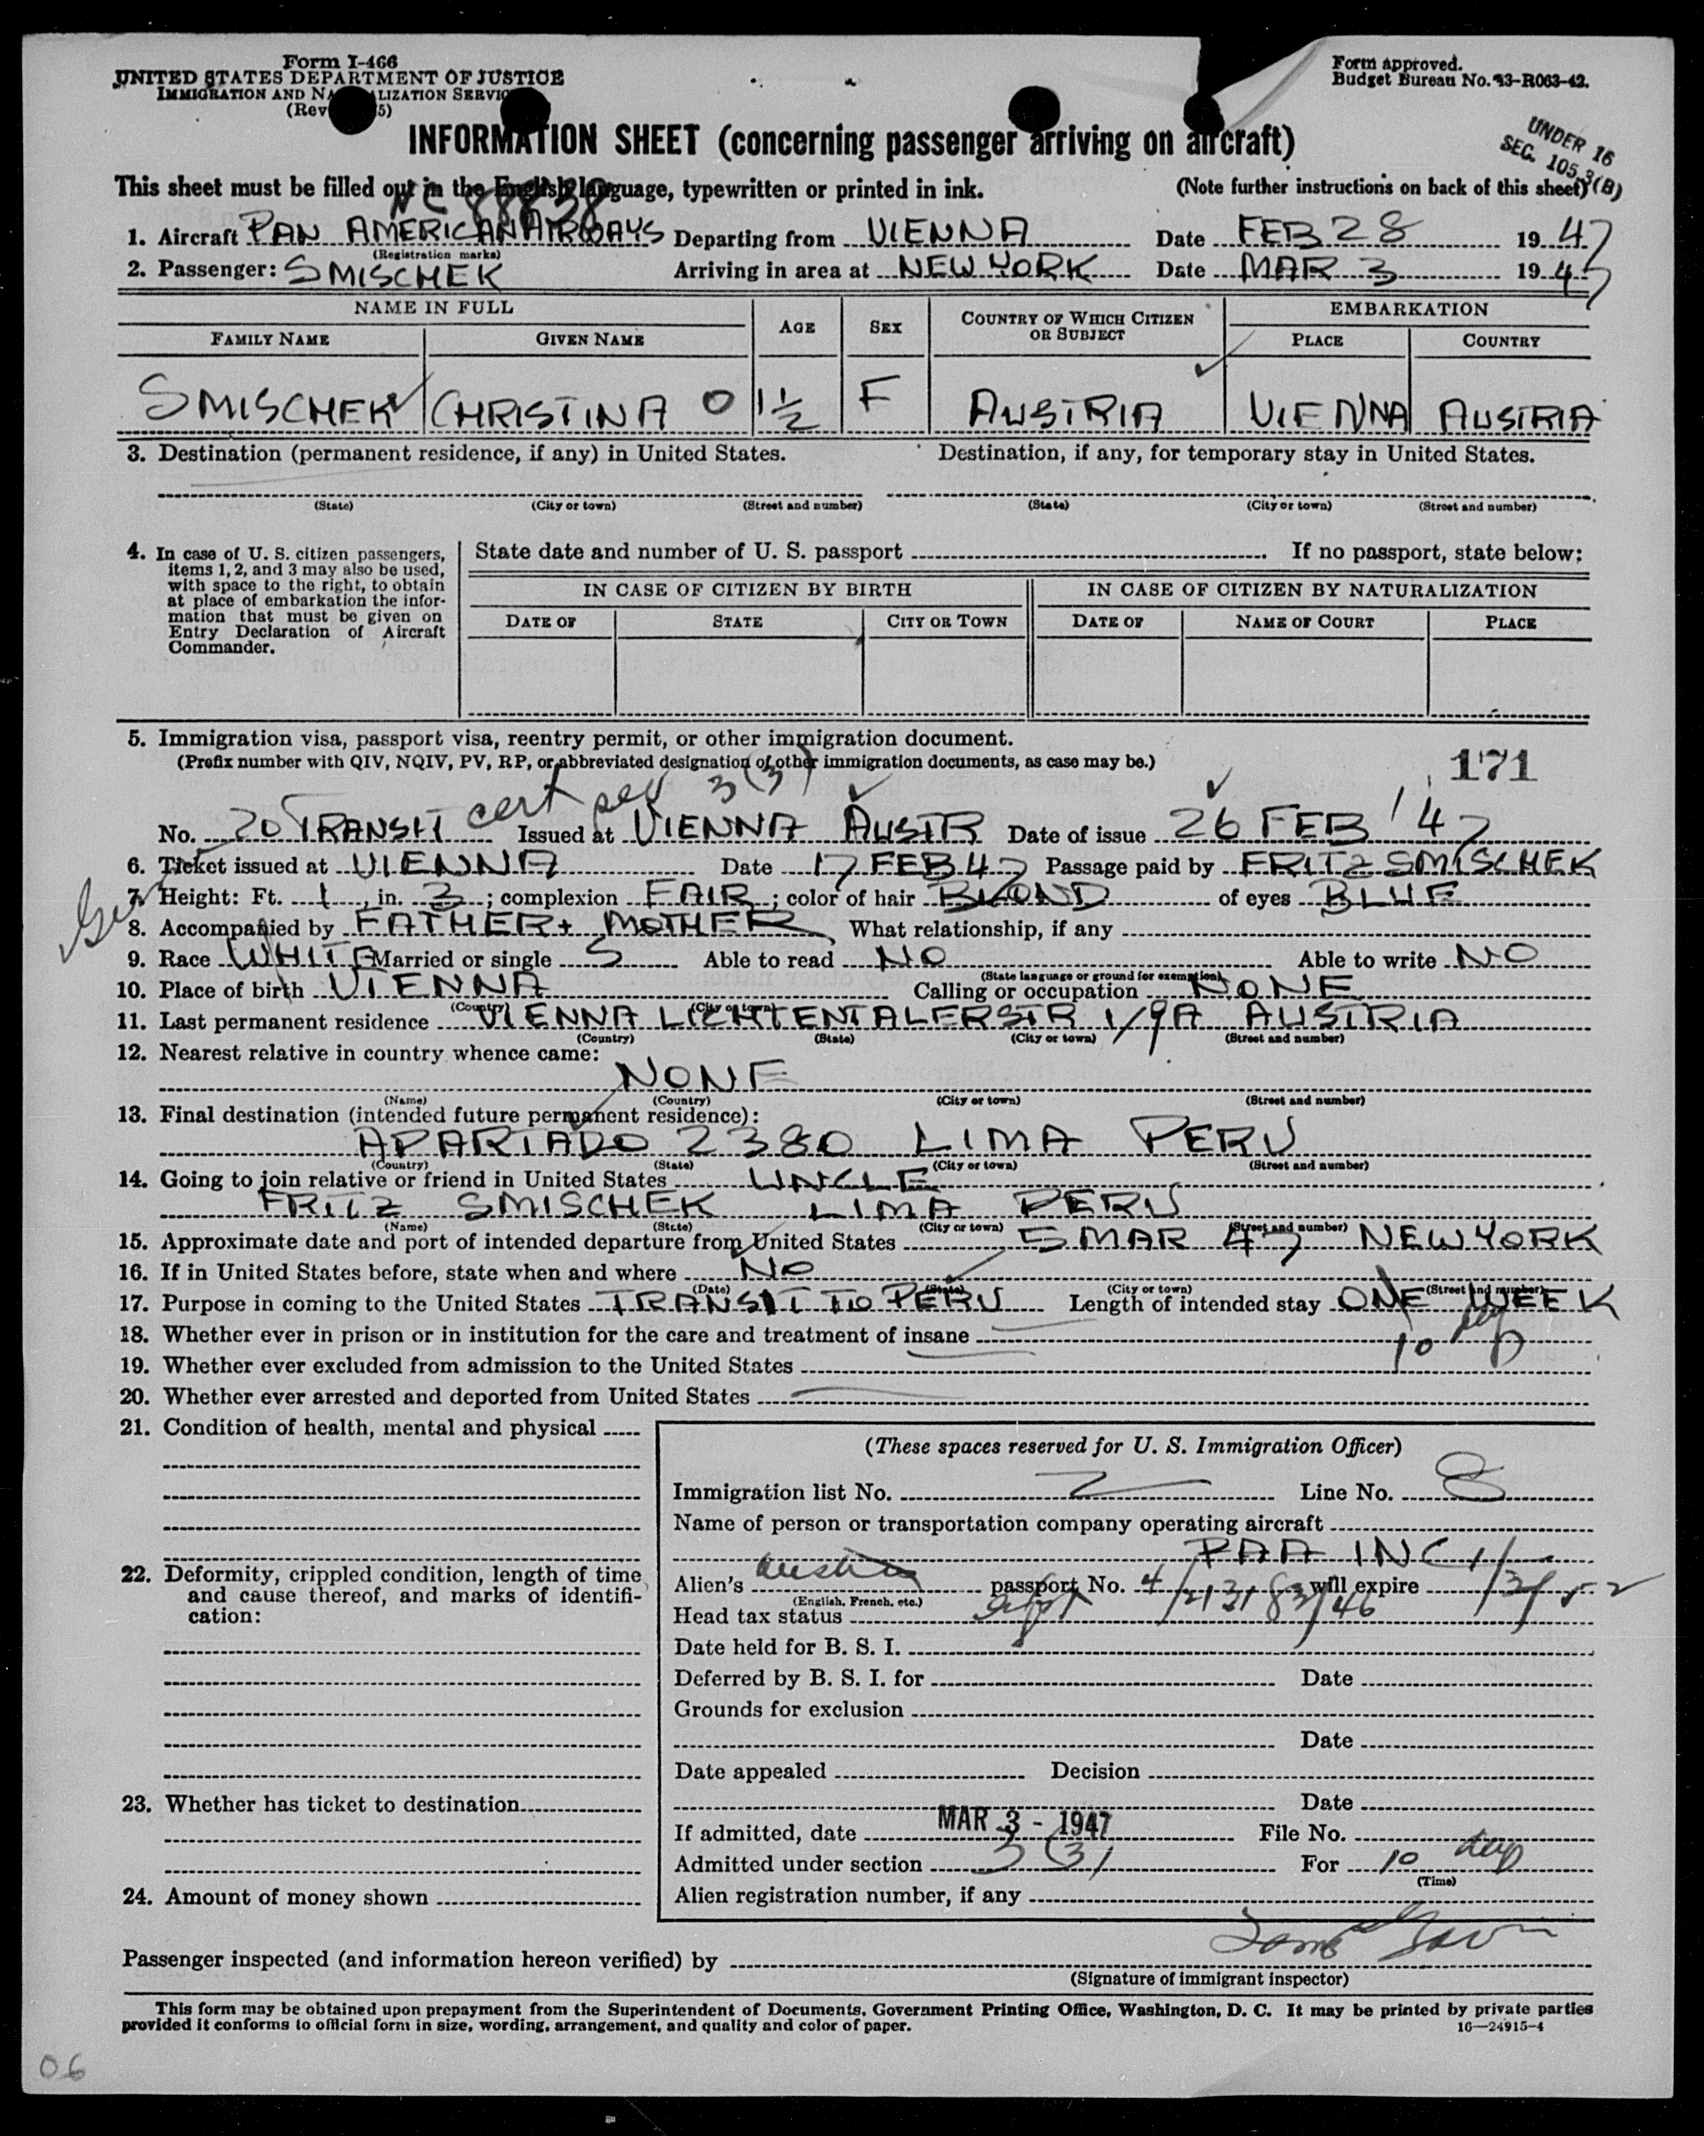 Form I-466
UNITED STATES DEPARTMENT OF JUSTICE
IMMIGRATION AND NA LIZATION SERVIC
(Rev 5)
Form approved.
Budget Bureau No. 43-R063-42.
INFORMATION SHEET (concerning passenger arriving on aircraft)
UNDER 16
SEC. 105.3(B)
This sheet must be filled out in the English language, typewritten or printed in ink. (Note further instructions on back of this sheet)
NC 88838
1. Aircraft PAN AMERICAN AIRWAYS Departing from VIENNA Date FEB 28 1947
(Registration marks)
2. Passenger: SMISCHEK Arriving in area at NEW YORK Date MAR 3 1947
NAME IN FULL AGE SEX COUNTRY OF WHICH CITIZEN OR SUBJECT EMBARKATION
FAMILY NAME GIVEN NAME PLACE COUNTRY
SMISCHEK CHRISTINA 0 1½ F AUSTRIA VIENNA AUSTRIA
3. Destination (permanent residence, if any) in United States. Destination, if any, for temporary stay in United States.
(State) (City or town) (Street and number) (State) (City or town) (Street and number)
4. In case of U. S. citizen passengers, items 1, 2, and 3 may also be used, with space to the right, to obtain at place of embarkation the information that must be given on Entry Declaration of Aircraft Commander.
State date and number of U. S. passport If no passport, state below:
IN CASE OF CITIZEN BY BIRTH IN CASE OF CITIZEN BY NATURALIZATION
DATE OF STATE CITY OR TOWN DATE OF NAME OF COURT PLACE
5. Immigration visa, passport visa, reentry permit, or other immigration document.
(Prefix number with QIV, NQIV, PV, RP, or abbreviated designation of other immigration documents, as case may be.)
171
cert sec 3(3)
No. 20 TRANSIT Issued at VIENNA AUSTR Date of issue 26 FEB '47
6. Ticket issued at VIENNA Date 17 FEB 47 Passage paid by FRITZ SMISCHEK
7. Height: Ft. 1, in. 3; complexion FAIR; color of hair BLOND of eyes BLUE
8. Accompanied by FATHER + MOTHER What relationship, if any
9. Race WHITE Married or single S Able to read NO Able to write NO
(State language or ground for exemption)
10. Place of birth VIENNA Calling or occupation NONE
(Country) (City or town)
11. Last permanent residence VIENNA LICHTENTALERSTR 1/9A AUSTRIA
(Country) (State) (City or town) (Street and number)
12. Nearest relative in country whence came:
NONE
(Name) (Country) (City or town) (Street and number)
13. Final destination (intended future permanent residence):
APARTADO 2380 LIMA PERU
(Country) (State) (City or town) (Street and number)
14. Going to join relative or friend in United States UNCLE
FRITZ SMISCHEK LIMA PERU
(Name) (State) (City or town) (Street and number)
15. Approximate date and port of intended departure from United States 5 MAR 47 NEW YORK
16. If in United States before, state when and where NO
(Date) (State) (City or town) (Street and number)
17. Purpose in coming to the United States TRANSIT TO PERU Length of intended stay ONE WEEK
10 days
18. Whether ever in prison or in institution for the care and treatment of insane
19. Whether ever excluded from admission to the United States
20. Whether ever arrested and deported from United States
21. Condition of health, mental and physical
(These spaces reserved for U. S. Immigration Officer)
Immigration list No. 2 Line No. 8
Name of person or transportation company operating aircraft
PAA INC
22. Deformity, crippled condition, length of time and cause thereof, and marks of identification:
Alien's Austrian passport No. will expire
(English, French, etc.)
Head tax status
Date held for B. S. I.
Deferred by B. S. I. for Date
Grounds for exclusion
Date
Date appealed Decision
23. Whether has ticket to destination
Date
If admitted, date MAR 3 - 1947 File No.
Admitted under section 3(3) For 10 days
(Time)
24. Amount of money shown
Alien registration number, if any
Passenger inspected (and information hereon verified) by
(Signature of immigrant inspector)
This form may be obtained upon prepayment from the Superintendent of Documents, Government Printing Office, Washington, D. C. It may be printed by private parties
provided it conforms to official form in size, wording, arrangement, and quality and color of paper. 16—24915-4
06